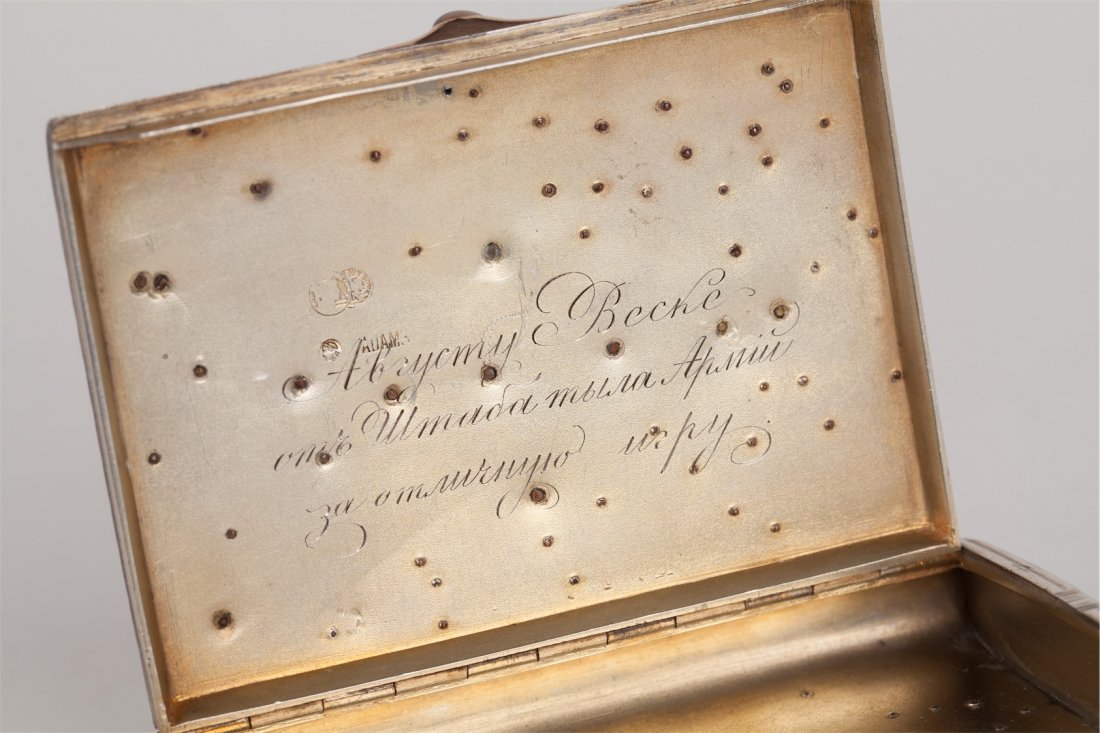 ADAMS
Августу Веске
отъ Штаба тыла Армій
за отличную игру